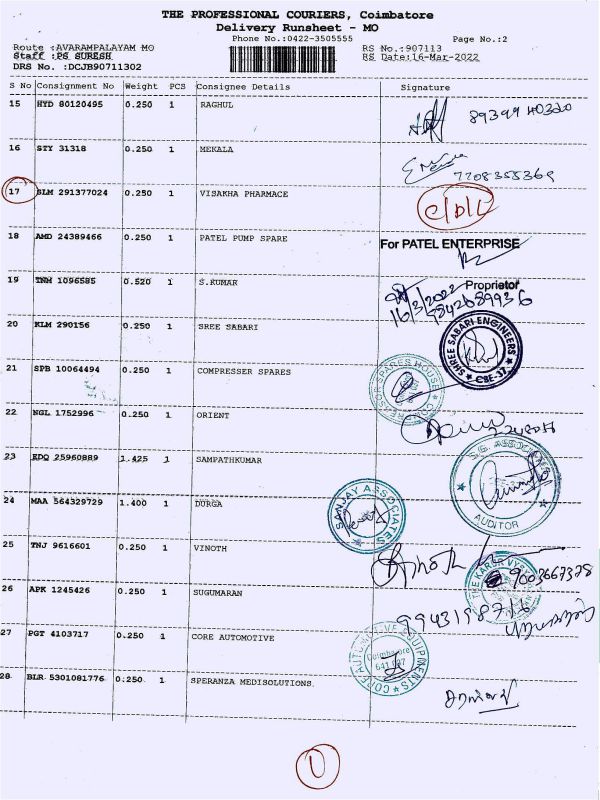 THE PROFESSIONAL COURIERS, Coimbatore
Delivery Runsheet - MO
Phone No.:0422-3505555
Page No.:2
Route :AVARAMPALAYAM MO
RS No.:907113
Staff :PS SURESH
RS Date:16-Mar-2022
DRS No. :DCJB90711302
S No Consignment No Weight PCS Consignee Details Signature
15 HYD 80120495 0.250 1 RAGHUL
89399 40320
16 STY 31318 0.250 1 MEKALA
7708355369
17 BLM 291377024 0.250 1 VISAKHA PHARMACE
18 AMD 24389466 0.250 1 PATEL PUMP SPARE
For PATEL ENTERPRISE
Proprietor
19 TNM 1096585 0.520 1 S.KUMAR
16/3/2022
9842689936
20 KLM 290156 0.250 1 SREE SABARI
SHREE SABARI ENGINEERS
CBE-37
21 SPB 10064494 0.250 1 COMPRESSER SPARES
22 NGL 1752996 0.250 1 ORIENT
23 EDQ 25960889 1.425 1 SAMPATHKUMAR
S.G. ASSOCIATES
AUDITOR
24 MAA 564329729 1.400 1 DURGA
SANJAY ASSOCIATES
25 TNJ 9616601 0.250 1 VINOTH
Vinoth
9003667378
26 APK 1245426 0.250 1 SUGUMARAN
THE KARUR VYSYA
9943198716
27 PGT 4103717 0.250 1 CORE AUTOMOTIVE
CORE AUTOMOTIVE EQUIPMENTS
Coimbatore
641 027
28 BLR 5301081776 0.250 1 SPERANZA MEDISOLUTIONS